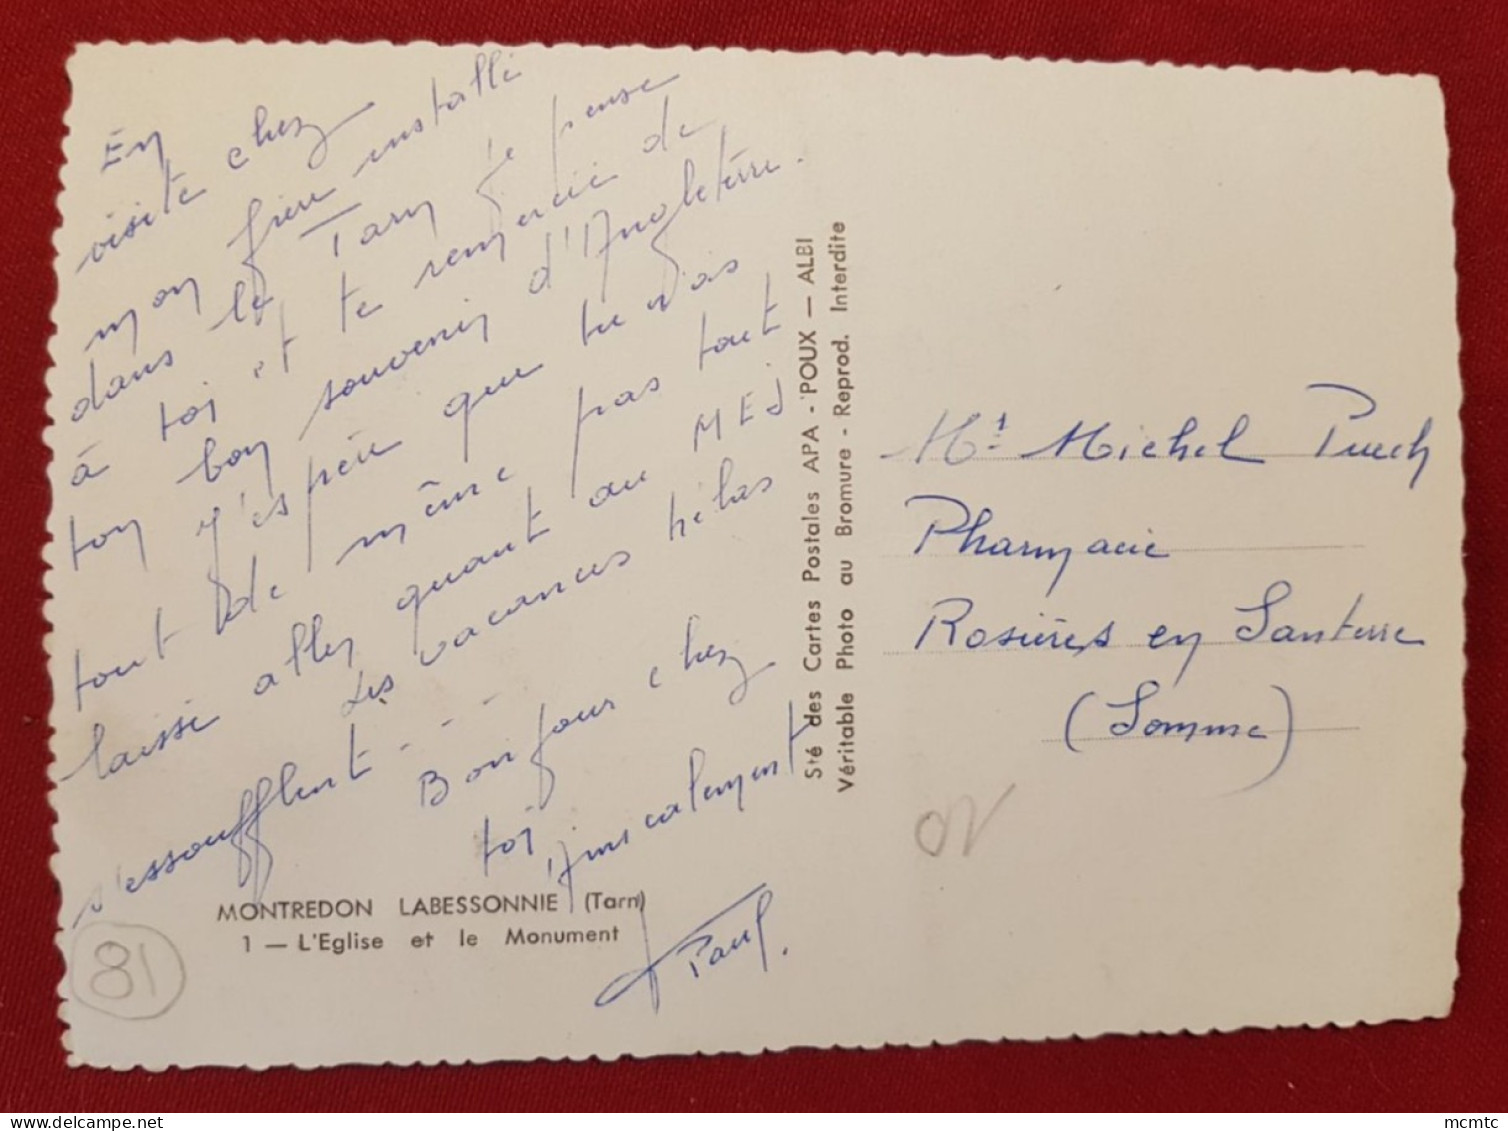 En
visite chez
mon frère installé
dans le Tarn je pense
à toi et te remercie de
ton bon souvenir d'Angleterre.
J'espère que tu vas
tout de même pas tout
laissé aller quant au MEJ
Les vacances hélas
s'essoufflent - - -
Bonjour chez
toi
Amicalement
Paul.
MONTREDON LABESSONNIE (Tarn)
1 — L'Eglise et le Monument
81
Sté des Cartes Postales APA - POUX — ALBI
Véritable Photo au Bromure - Reprod. Interdite
Mr Michel Puech
Pharmacie
Rosières en Santerre
(Somme)
mcmtc